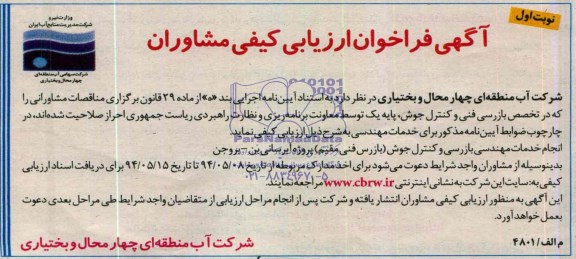 نوبت اول
وزارت نیرو
شرکت مدیریت منابع آب ایران
شرکت سهامی آب منطقه‌ای
چهارمحال و بختیاری
آگهی فراخوان ارزیابی کیفی مشاوران
شرکت آب منطقه‌ای چهارمحال و بختیاری در نظر دارد به استناد آیین‌نامه اجرایی بند «ه» از ماده ۲۹ قانون برگزاری مناقصات مشاورانی را
که در تخصص بازرسی فنی و کنترل جوش، پایه یک توسط معاونت برنامه‌ریزی و نظارت راهبردی ریاست جمهوری احراز صلاحیت شده‌اند، در
چارچوب ضوابط آیین‌نامه مذکور برای خدمات مهندسی به شرح ذیل ارزیابی کیفی نماید.
انجام خدمات مهندسی بازرسی و کنترل جوش (بازرسی فنی مقیم) پروژه آبرسانی بن - بروجن
بدینوسیله از مشاوران واجد شرایط دعوت می‌شود برای اخذ مدارک مربوطه از تاریخ ۹۴/۰۵/۰۸ تا تاریخ ۹۴/۰۵/۱۵ برای دریافت اسناد ارزیابی
کیفی به: سایت این شرکت به نشانی اینترنتی www.cbrw.ir مراجعه نمایند.
این آگهی به منظور ارزیابی کیفی مشاوران انتشار یافته و شرکت پس از انجام مراحل ارزیابی از متقاضیان واجد شرایط طی مراحل بعدی دعوت
بعمل خواهد آورد.
شرکت آب منطقه‌ای چهارمحال و بختیاری
م الف/ ۴۸۰۱
ParsNamadData
۰۲۱-۸۸۳۴۹۶۷۰-۵